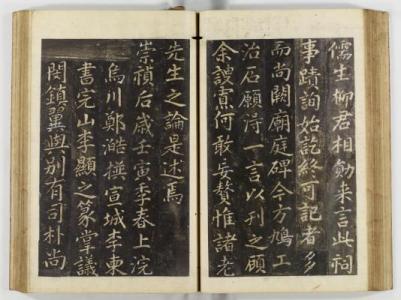 儒生柳君相勛来言此祠
事蹟詢始訖終可記者多
而尚闕廟庭碑今方鳩工
治石願得一言以刊之顧
余謏寡何敢妄贅惟諸老
先生之論是述焉
崇禎后歲壬寅季春上浣
烏川鄭澔撰宣城李東
書完山李顯之篆掌議
閔鎮翼與别有司朴尚